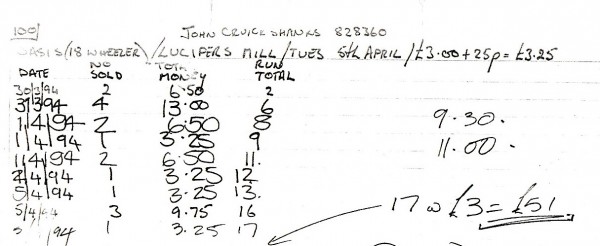 100/ JOHN CRUICKSHANKS 828360
OASIS/(18 WHEELER)/LUCIFERS MILL/TUES 5th APRIL/£3.00+25p=£3.25
DATE NO SOLD TOTAL MONEY RUN TOTAL
30/3/94 2 6.50 2
31/3/94 4 13.00 6
1/4/94 2 6.50 8
1/4/94 1 3.25 9
1/4/94 2 6.50 11.
2/4/94 1 3.25 12
5/4/94 1 3.25 13.
5/4/94 3 9.75 16
94 1 3.25 17
9.30.
11.00.
17 @ £3 = £51